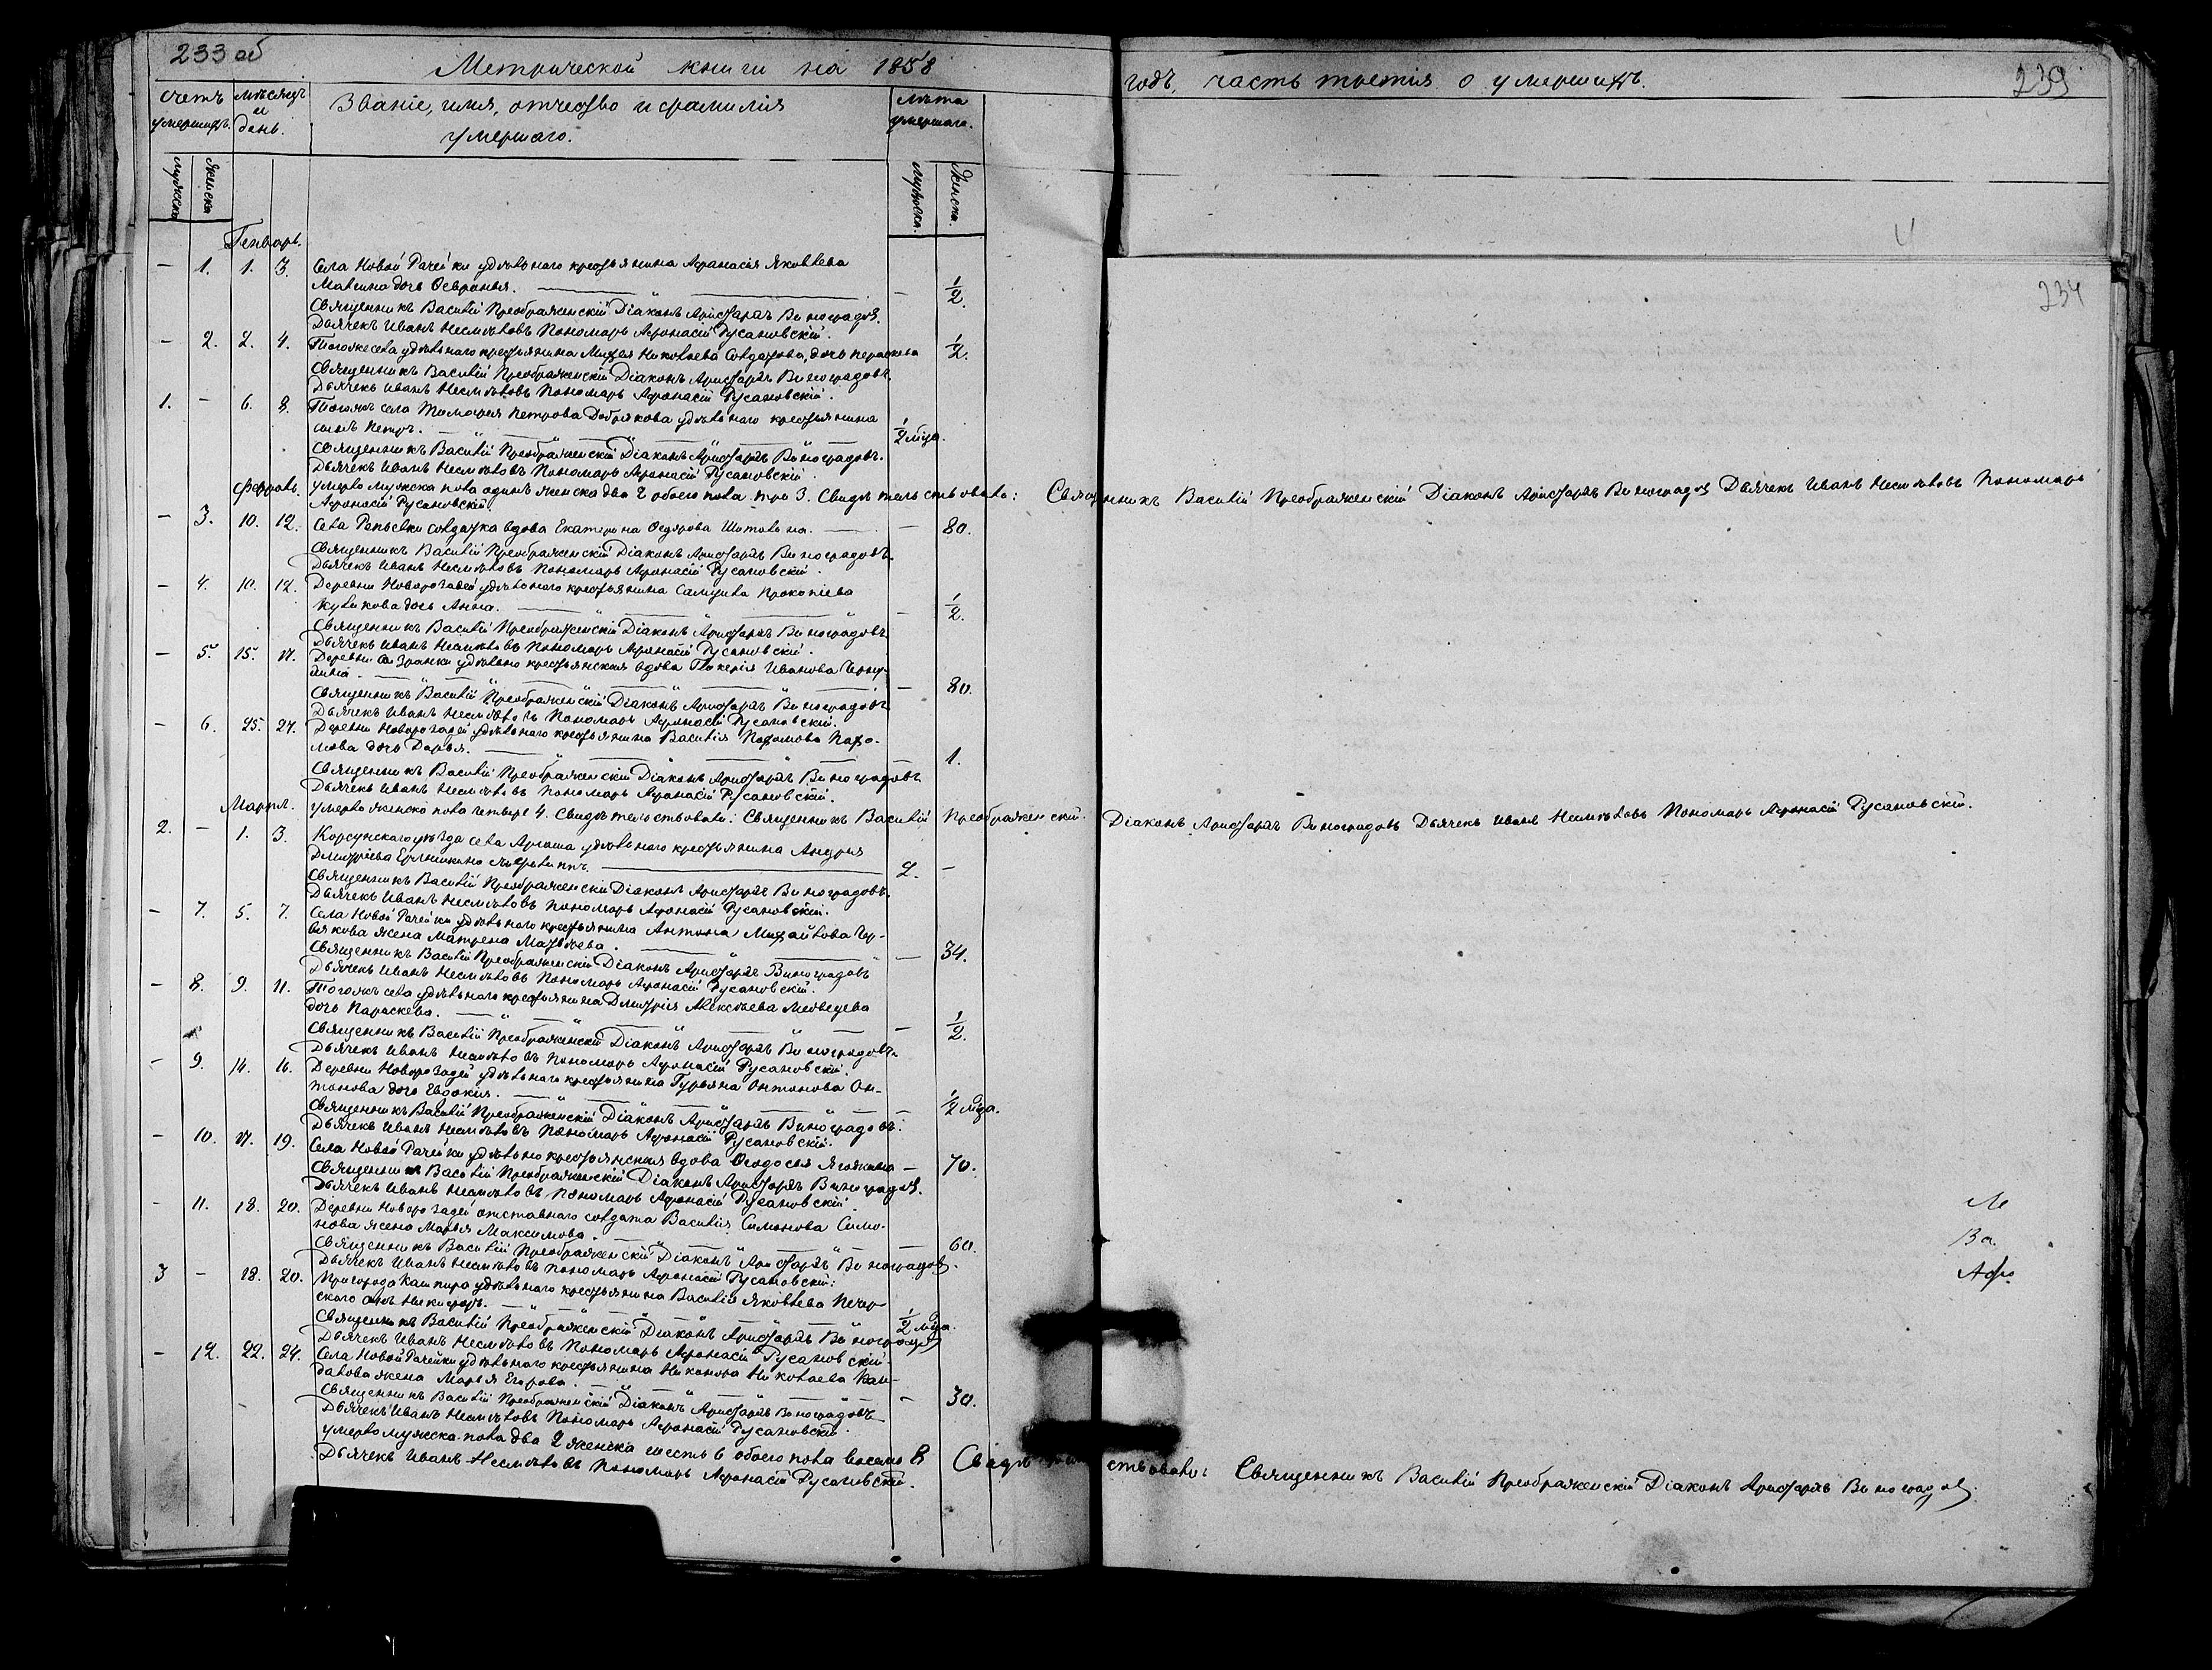 233 об
Метрической книги на 1858 годъ, часть третія о умершихъ.
239
234
Счетъ умершихъ.
Мѣсяцъ и день.
Званіе, имя, отчество и фамилія умершаго.
Лѣта умершаго.
Мужеска
Женска
Мужеска.
Женска.
Генварь.
— 1. 1. 3. Села Новой Рачейки удѣльнаго крестьянина Афанасія Яковлева
дочь Февронья. — 1/2.
Священникъ Василій Преображенскій Діаконъ Аристархъ Виноградовъ.
Дьячекъ Иванъ Несмѣловъ Пономарь Афонасій Русановскій.
— 2. 2. 4. Тогоже села удѣльнаго крестьянина Николаева дочь 1/2.
Священникъ Василій Преображенскій Діаконъ Аристархъ Виноградовъ.
Дьячекъ Иванъ Несмѣловъ Пономарь Афонасій Русановскій.
1. — 6. 8. Тогожъ села Тимофея Петрова Добрякова удѣльнаго крестьянина
сынъ Петръ. 1/2 мца.
Священникъ Василій Преображенскій Діаконъ Аристархъ Виноградовъ.
Дьячекъ Иванъ Несмѣловъ Пономарь Афонасій Русановскій.
Февраль.
умерло мужска пола одинъ женска два 2 обоего пола три 3. Свидѣтельствовали: Священникъ Василій Преображенскій Діаконъ Аристархъ Виноградовъ Дьячекъ Иванъ Несмѣловъ Пономарь
Афонасій Русановскій
— 3. 10. 12. Села Репьевки солдатка вдова Екатерина Федорова — 80.
Священникъ Василій Преображенскій Діаконъ Аристархъ Виноградовъ.
Дьячекъ Иванъ Несмѣловъ Пономарь Афонасій Русановскій.
— 4. 10. 12. Деревни удѣльнаго крестьянина Самуила Прокопіева
Куликова дочь Анна. — 1/2.
Священникъ Василій Преображенскій Діаконъ Аристархъ Виноградовъ
Дьячекъ Иванъ Несмѣловъ Пономарь Афонасій Русановскій.
— 5. 15. 17. Деревни удѣльно крестьянская вдова Гликерія Иванова
— 80.
Священникъ Василій Преображенскій Діаконъ Аристархъ Виноградовъ
Дьячекъ Иванъ Несмѣловъ Пономарь Афонасій Русановскій.
— 6. 25. 27. Деревни удѣльнаго крестьянина Василія Пахомова Пахо-
мова дочь Дарья. — 1.
Священникъ Василій Преображенскій Діаконъ Аристархъ Виноградовъ
Дьячекъ Иванъ Несмѣловъ Пономарь Афонасій Русановскій.
Мартъ.
умерло женска пола четыре 4. Свидѣтельствовали: Священникъ Василій Преображенскій. Діаконъ Аристархъ Виноградовъ Дьячекъ Иванъ Несмѣловъ Пономарь Афонасій Русановскій.
2. — 1. 3. Корсунскаго уѣзда села Аргаша удѣльнаго крестьянина Андрея
Дмитріева 2. —
Священникъ Василій Преображенскій Діаконъ Аристархъ Виноградовъ.
Дьячекъ Иванъ Несмѣловъ Пономарь Афонасій Русановскій.
— 7. 5. 7. Села Новой Рачейки удѣльнаго крестьянина Антона Михайлова Чер-
влкова жена Матрена — 34.
Священникъ Василій Преображенскій Діаконъ Аристархъ Виноградовъ
Дьячекъ Иванъ Несмѣловъ Пономарь Афонасій Русановскій.
— 8. 9. 11. Тогожъ села удѣльнаго крестьянина Дмитрія Алексѣева Медведева
дочь Параскева. — 1/2.
Священникъ Василій Преображенскій Діаконъ Аристархъ Виноградовъ
Дьячекъ Иванъ Несмѣловъ Пономарь Афонасій Русановскій.
— 9. 14. 16. Деревни удѣльнаго крестьянина Гурьяна Онтонова Он-
тонова дочь Евдокія. — 1/2 мца.
Священникъ Василій Преображенскій Діаконъ Аристархъ Виноградовъ.
Дьячекъ Иванъ Несмѣловъ Пономарь Афонасій Русановскій.
— 10. 17. 19. Села Новой Рачейки удѣльно крестьянская вдова Феодосья — 70.
Священникъ Василій Преображенскій Діаконъ Аристархъ Виноградовъ.
Дьячекъ Иванъ Несмѣловъ Пономарь Афонасій Русановскій.
— 11. 18. 20. Деревни отставнаго солдата Василія Симонова Симо-
нова жена Марья Максимова. — 60.
Священникъ Василій Преображенскій Діаконъ Аристархъ Виноградовъ.
Дьячекъ Иванъ Несмѣловъ Пономарь Афонасій Русановскій:
3 — 18. 20. Пригорода Кашпира удѣльнаго крестьянина Василія Яковлева Печер-
скаго сынъ Никифоръ. 1/2 мца.
Священникъ Василій Преображенскій Діаконъ Аристархъ Виноградовъ
Дьячекъ Иванъ Несмѣловъ Пономарь Афонасій Русановскій
— 12. 22. 24. Села Новой Рачейки удѣльнаго крестьянина Никонора Николаева Кан-
далова жена Марья Егорова. — 30.
Священникъ Василій Преображенскій Діаконъ Аристархъ Виноградовъ
Дьячекъ Иванъ Несмѣловъ Пономарь Афонасій Русановскій.
умерло мужска пола два 2 женска шесть 6 обоего пола восемь 8 Свидѣтельствовали: Священникъ Василій Преображенскій Діаконъ Аристархъ Виноградовъ.
Дьячекъ Иванъ Несмѣловъ Пономарь Афонасій Русановскій.
М
Ва.
Афо